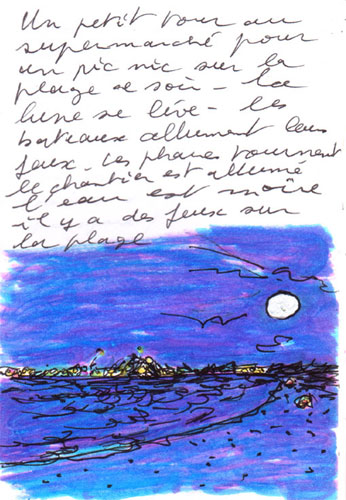 Un petit tour au
supermarché pour
un pic nic sur la
plage ce soir - La
lune se lève - les
bateaux allument leurs
feux. Les phares tournent
le chantier est allumé
l'eau est moire
il y a des feux sur
la plage